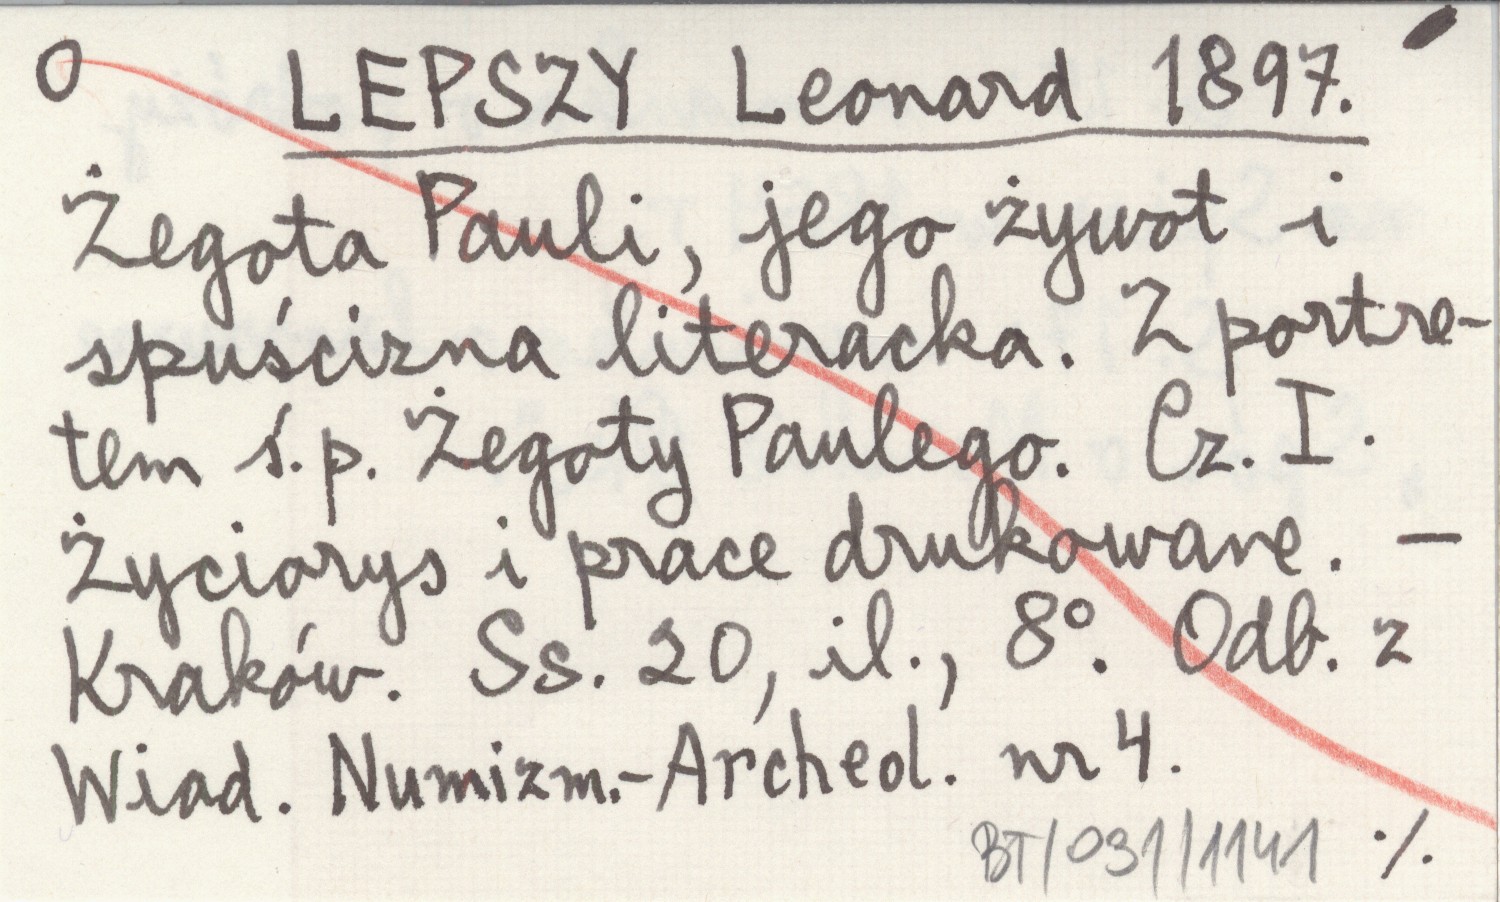 O LEPSZY Leonard 1897.
Żegota Pauli, jego żywot i
spuścizna literacka. Z portre-
tem ś.p. Żegoty Paulego. Cz. I.
Życiorys i prace drukowane. —
Kraków. Ss. 20, il., 8°. Odb. z
Wiad. Numizm.-Archeol. nr 4.
BT/031/1141 ·/.